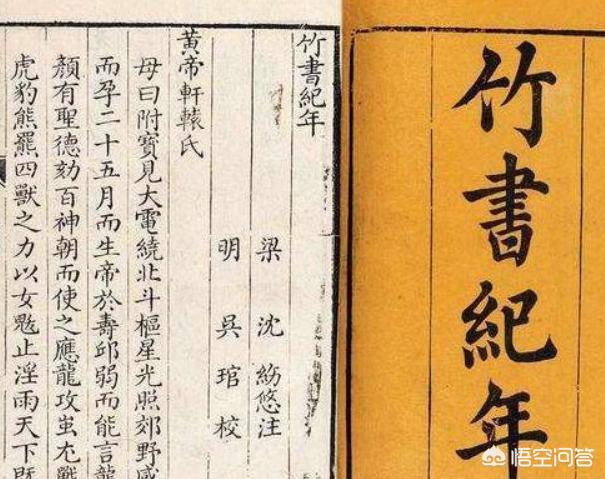 竹書紀年
竹書紀年
梁沈約悠注
明吳琯校
黃帝軒轅氏
母曰附寶見大電繞北斗樞星光照郊野感
而孕二十五月而生帝於壽邱弱而能言龍
顏有聖德劾百神朝而使之應龍攻蚩尤戰
虎豹熊羆四獸之力以女魃止淫雨天下既
悟空问答